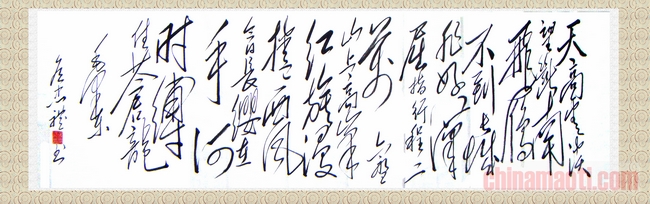 天高云淡
望断南
飞雁
不到长城
非好汉
屈指行程二
万 六盘
山上高峰
红旗漫
卷西风
今日长缨在
手何
时缚
住苍龍
毛泽东
书
chinamaoti.com